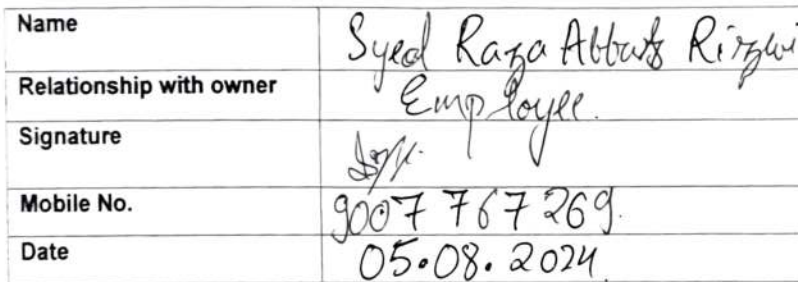 Name Syed Raza Abbas Rizwi
Relationship with owner Employee.
Signature
Mobile No. 9007 767 269.
Date 05.08.2024